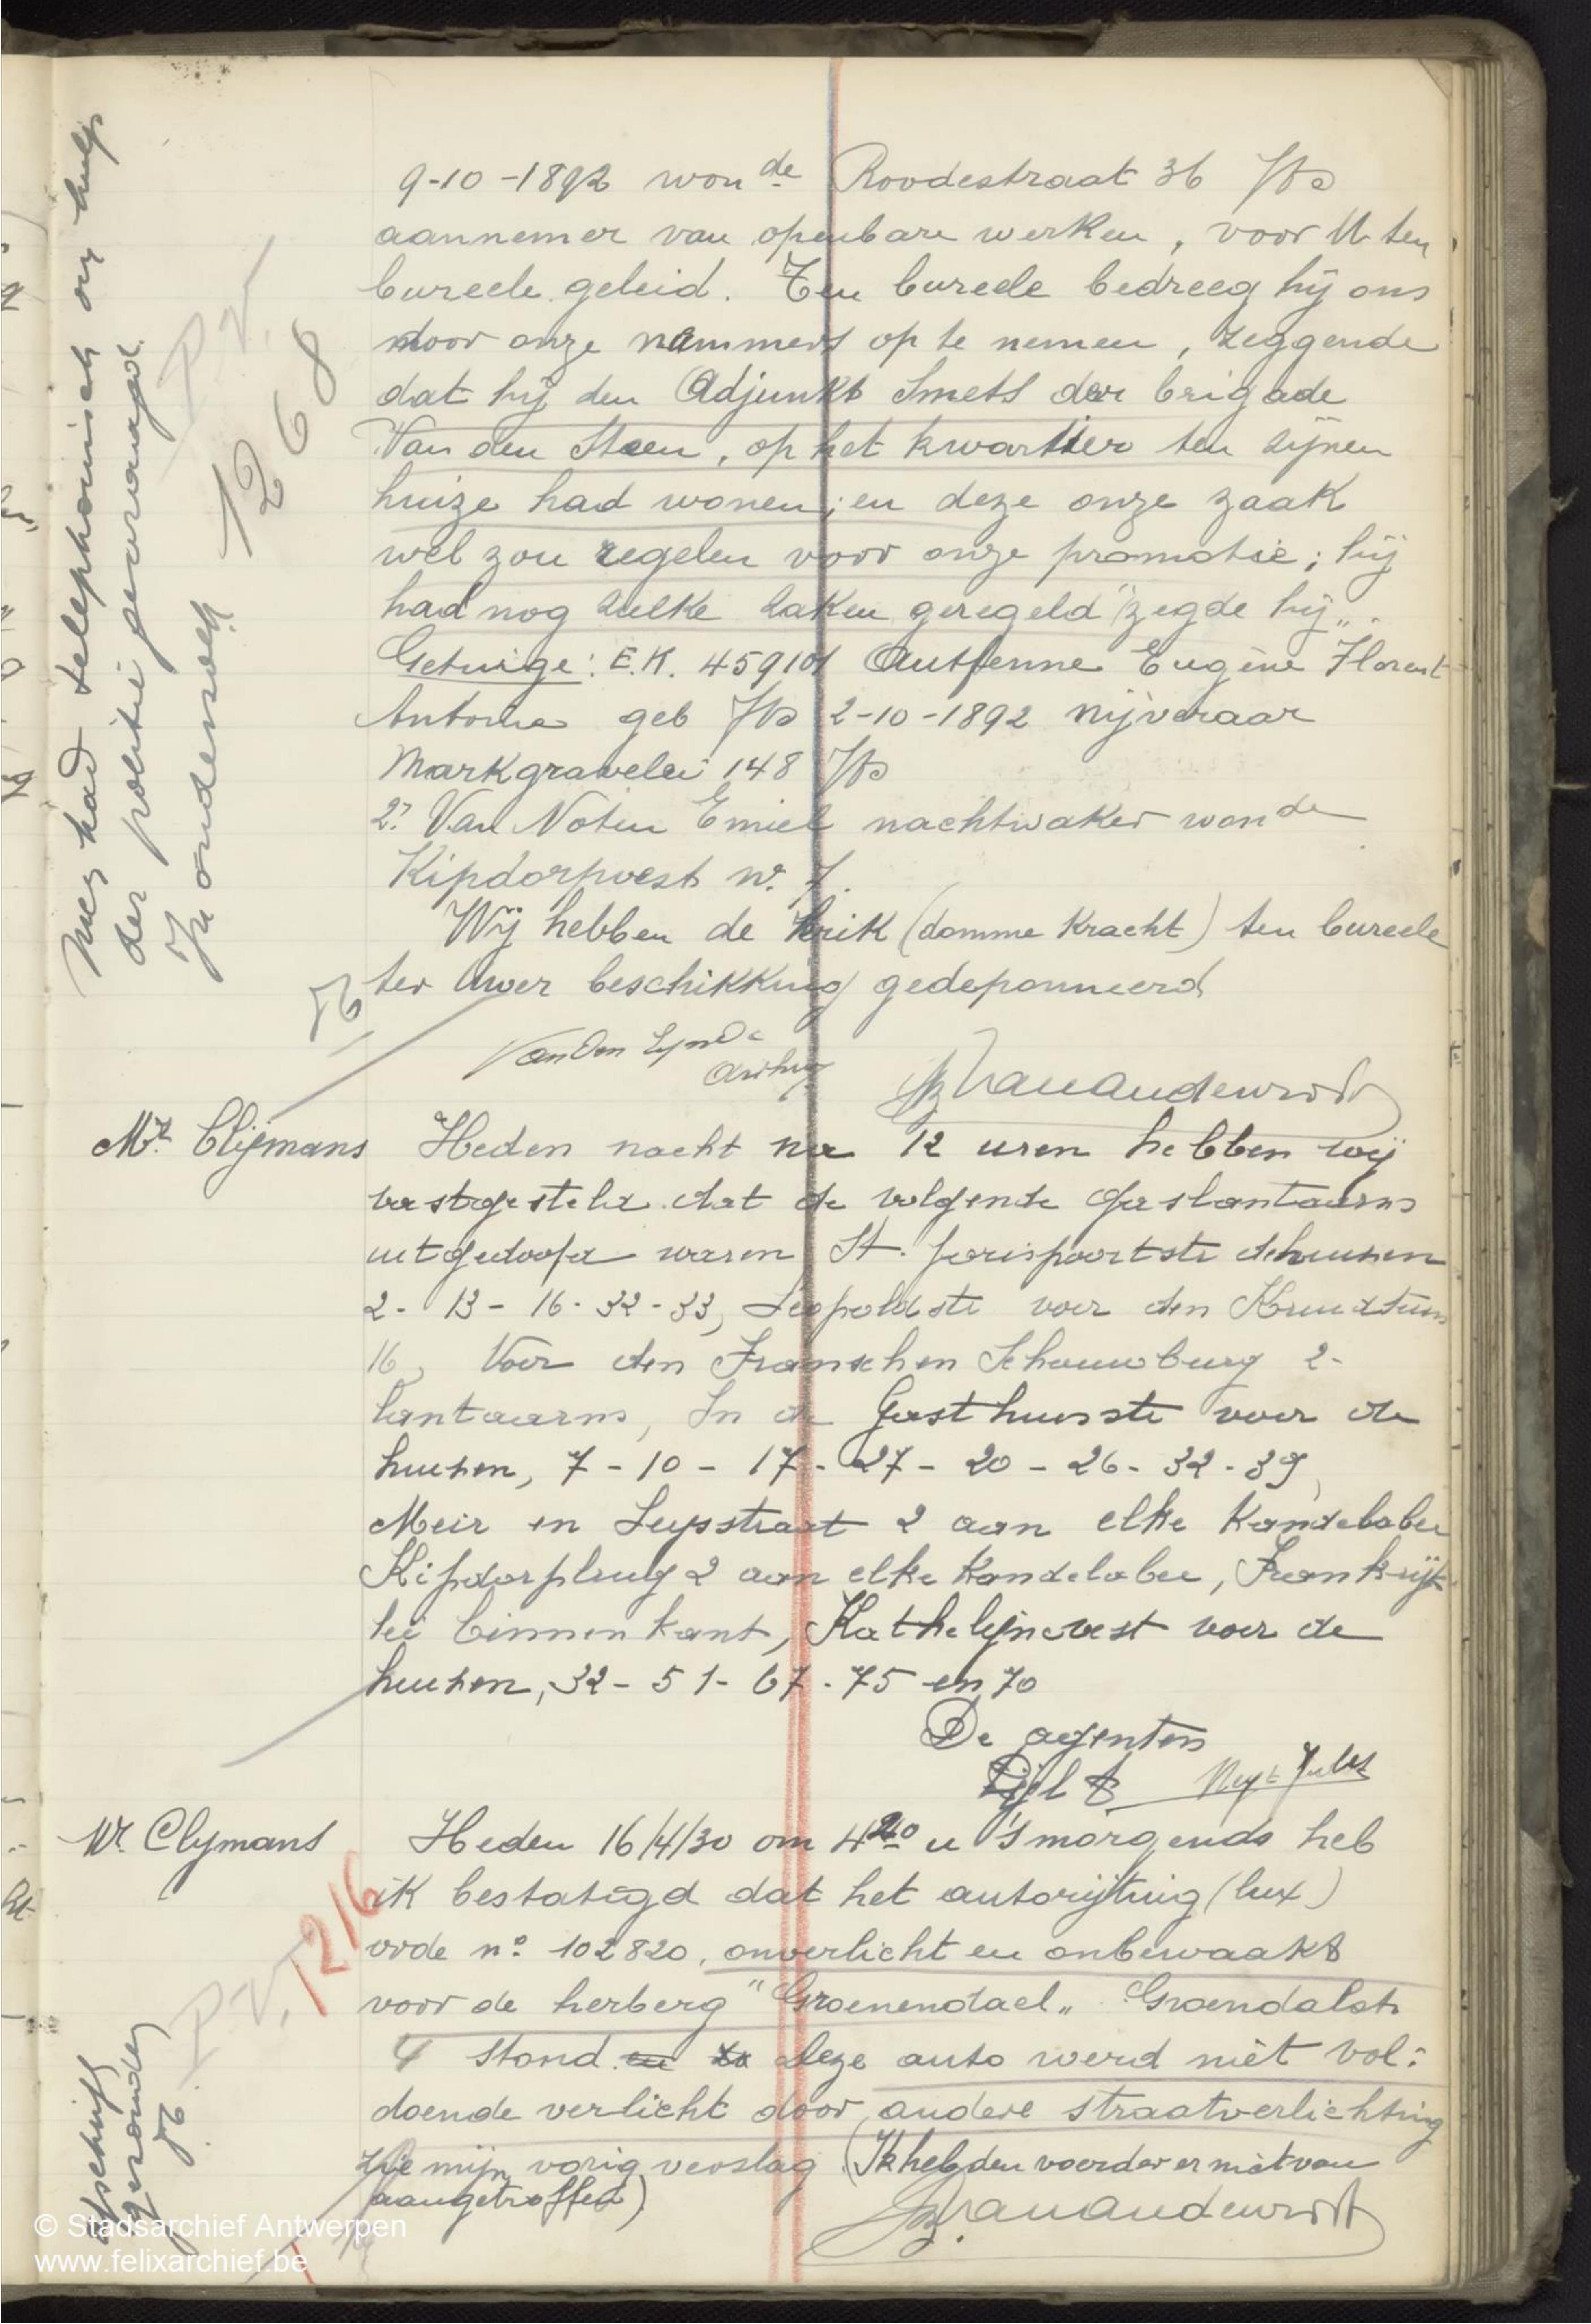 9-10-1892 won de Roodestraat 36 
aannemer van openbare werken, voor U ten
bureele geleid. Ten bureele bedreeg hij ons
door onze nummers op te nemen, zeggende
dat hij den Adjunkt Smets der brigade
Van den Steen, op het kwartier ten zijnen
huize had wonen; en deze onze zaak
wel zou regelen voor onze promotie; hij
had nog zulke zaken geregeld "zegde hij„.
Getuige: E.K. 459101 Eugène Florent
Antoine geb 2-10-1892 nijveraar
Markgravelei 148
2? Van Noten Emiel nachtwaker won de
Kipdorpvest nr. 7.
Wij hebben de krik (domme kracht) ten bureele
ter Uwer beschikking gedeponneerd
Van den
Men had telephonisch om hulp
der politie gevraagd.
In onderzoek
P.V.
1268
Mr. Clijmans
Heden nacht na 12 uren hebben wij
vastgesteld dat de volgende gaslantaarns
uitgedoofd waren St. Jorispoortstr de huizen
2- 13- 16- 32- 33, Leopoldstr voor den Kruidtuin
16, Voor den Franschen Schouwburg 2-
lantaarns, In de Gasthuisstr voor de
huizen, 7-10-17-27-20-26-32-39,
Meir en Leysstraat 2 aan elke kandelaber
Kipdorpbrug 2 aan elke kandelaber, Frankrijk
lei binnenkant, Kathelijnevest voor de
huizen, 32-51-67-75 en 70
De agenten
Jules
Mr. Clymans
Heden 16/4/30 om 4 20 u 's morgends heb
ik bestatigd dat het autorijtuig (lux)
rode n° 102820, onverlicht en onbewaakt
voor de herberg "Groenendael„ Groendalstr
4 stond en Deze auto werd niet vol:
doende verlicht door andere straatverlichting
zie mijn vorig verslag (Ik heb den voerder er niet van
aangetroffen)
P.V. 1216
Afschrift
gezonden
© Stadsarchief Antwerpen
www.felixarchief.be